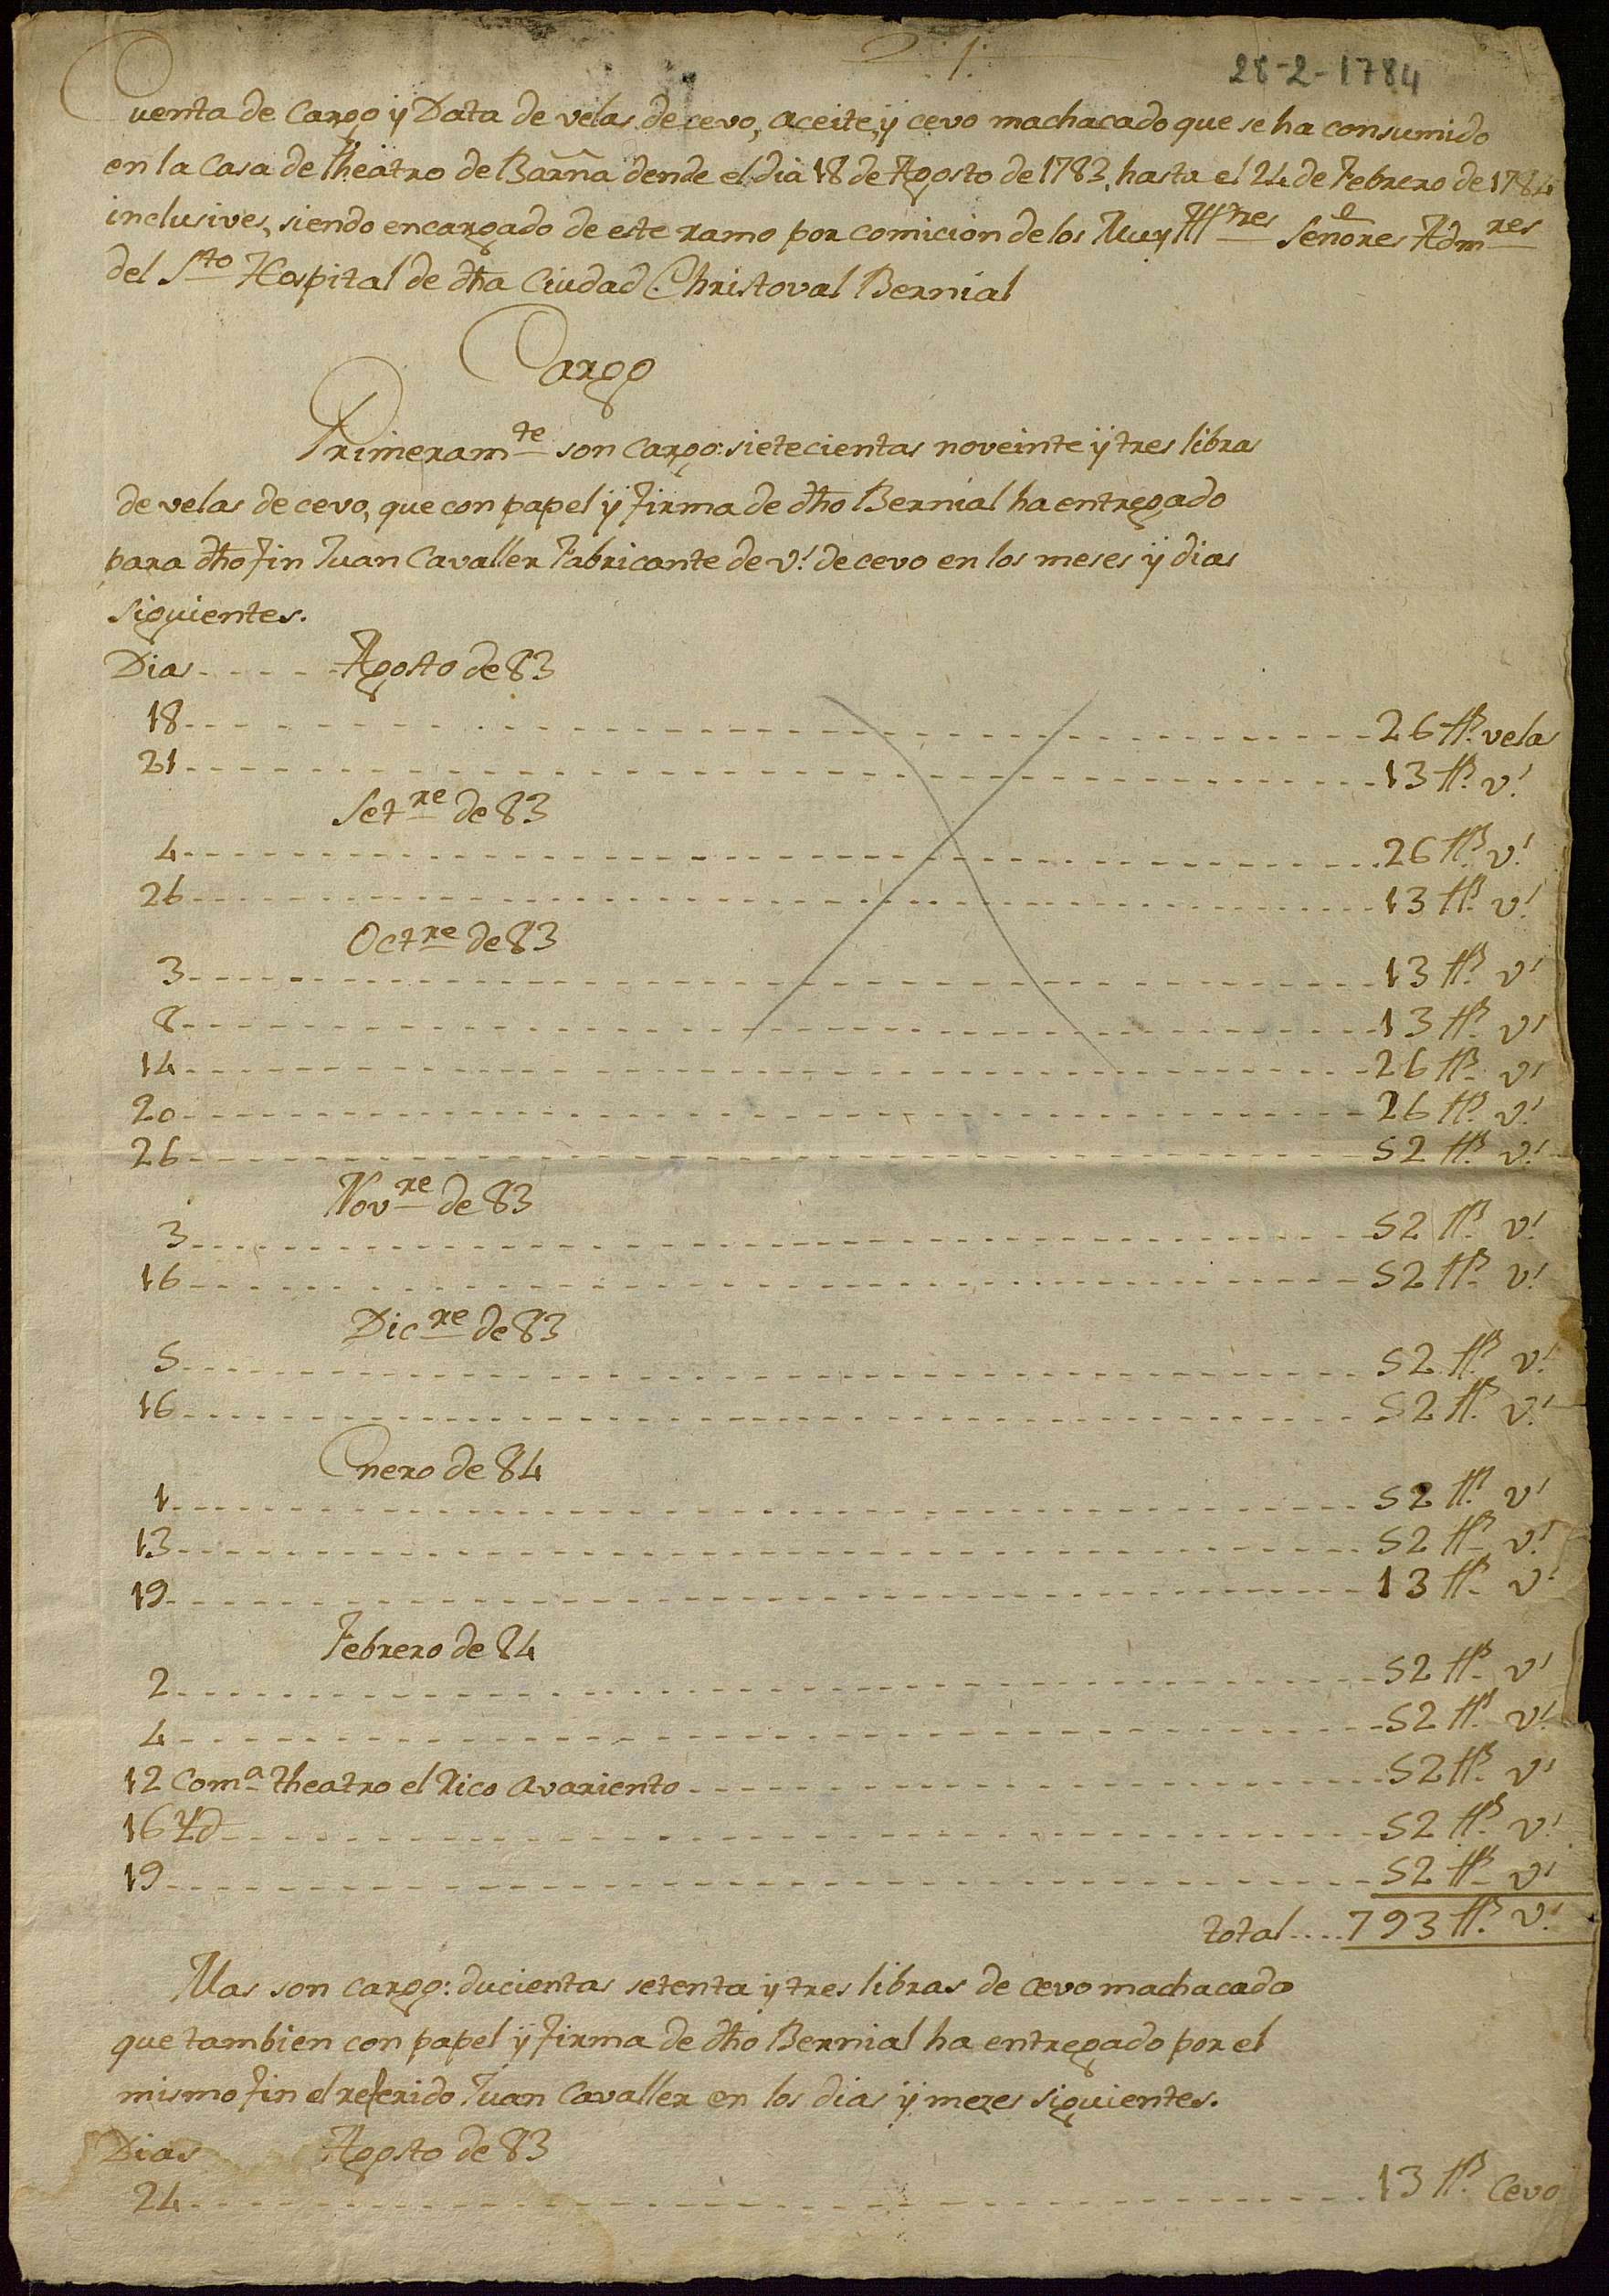 28-2-1784
Cuenta de Cargo y Data de velas de cevo, aceite, ÿ cevo machacado que se ha consumido
en la Casa de Theatro de Barña dende el dia 18 de Agosto de 1783, hasta el 24 de Febrero de 1784
inclusives, siendo encargado de este ramo por comicion de los Muy Illres Señores Admres
del Sto Hospital de dha Ciudad Christoval Bernial
Cargo
Primeramte son cargo: sietecientas noveinte ÿ tres libras
de velas de cevo, que con papel ÿ firma de dho Bernial ha entregado
para dho fin Juan Cavaller Fabricante de v.s de cevo en los meses ÿ dias
siguientes.
Dias - - - - - Agosto de 83
18 - - - 26 ℔. velas
21 - - - 13 ℔. v.s
Setre de 83
4 - - - 26 ℔. v.s
26 - - - 13 ℔. v.s
Octre de 83
3 - - - 13 ℔. v.s
8 - - - 13 ℔. v.s
14 - - - 26 ℔. v.s
20 - - - 26 ℔. v.s
26 - - - 52 ℔. v.s
Novre de 83
3 - - - 52 ℔. v.s
16 - - - 52 ℔. v.s
Dicre de 83
5 - - - 52 ℔. v.s
16 - - - 52 ℔. v.s
Enero de 84
1 - - - 52 ℔. v.s
13 - - - 52 ℔. v.s
19 - - - 13 ℔. v.s
Febrero de 84
2 - - - 52 ℔. v.s
4 - - - 52 ℔. v.s
12 Coma theatro el Rico Avariento - - - 52 ℔. v.s
16 Yd - - - 52 ℔. v.s
19 - - - 52 ℔. v.s
total .... 793 ℔. v.s
Mas son cargo: ducientas setenta ÿ tres libras de cevo machacado
que tambien con papel ÿ firma de dho Bernial ha entregado por el
mismo fin el referido Juan Cavaller en los dias ÿ mezes siguientes.
Dias Agosto de 83
24 - - - 13 ℔. Cevo